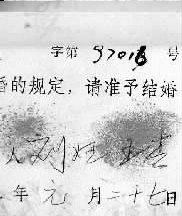 字第 97018 号
的规定，请准予结婚
人 刘
年 元 月二十七日